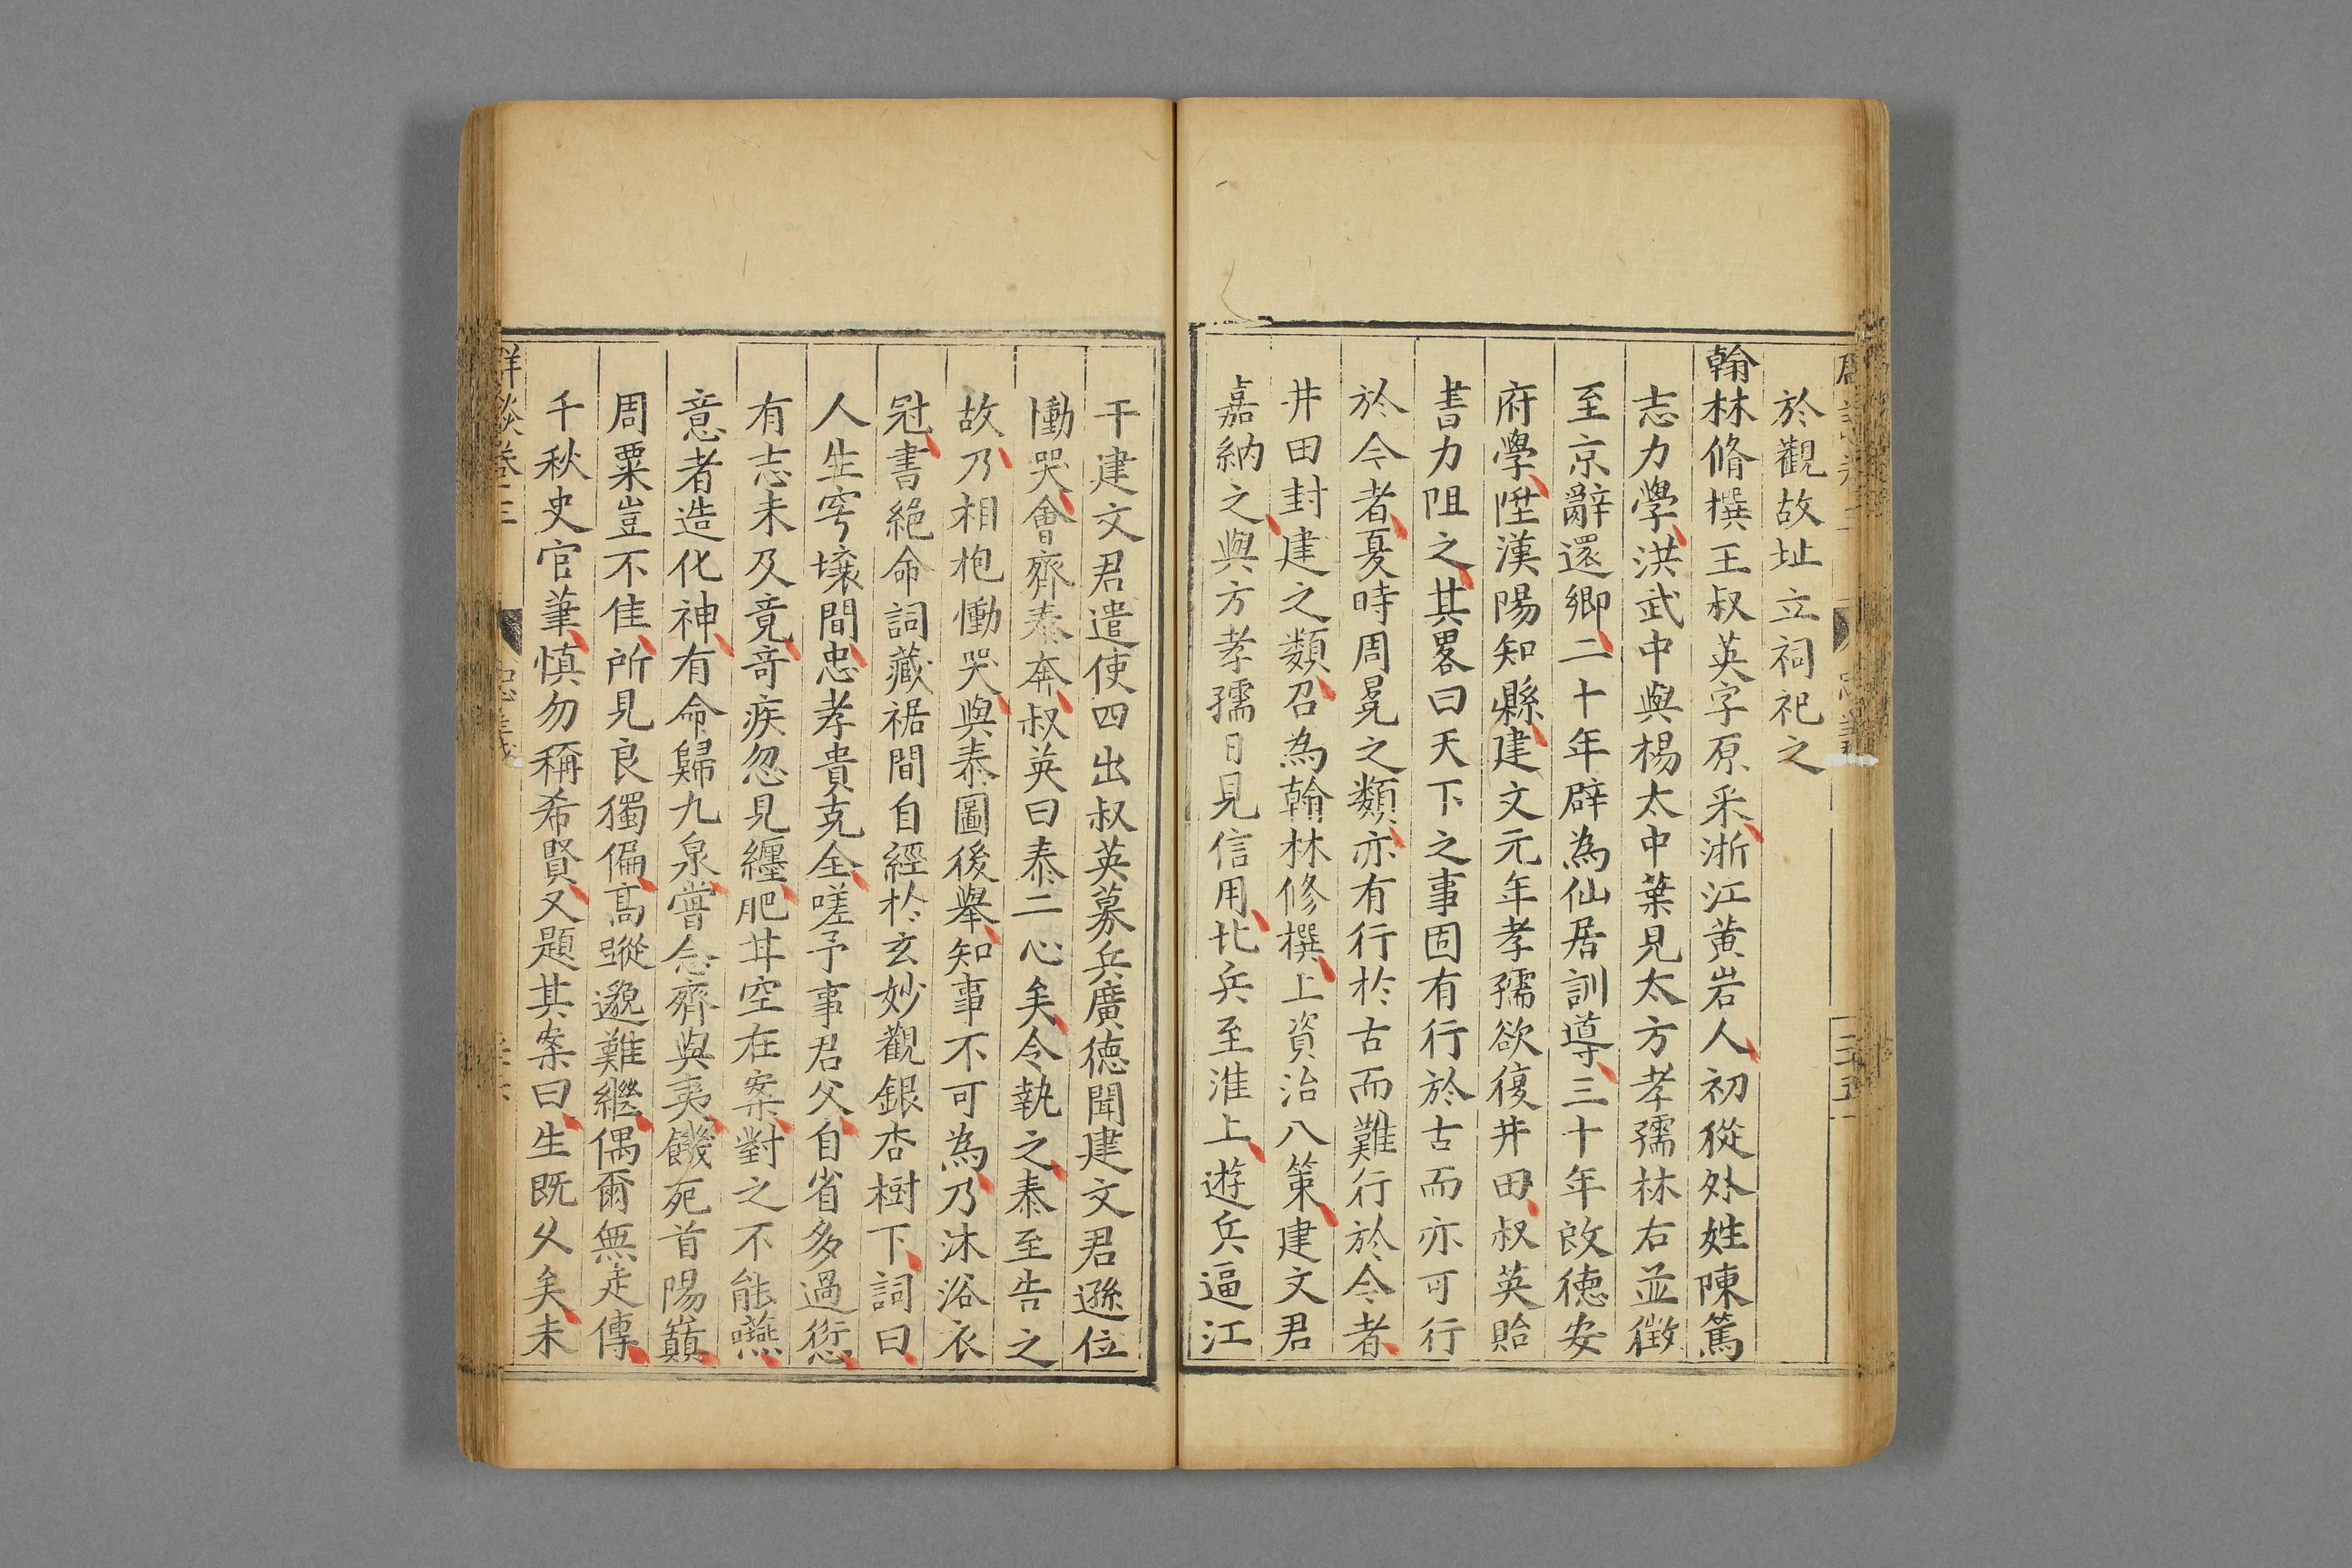 於觀故址立祠祀之
翰林脩撰王叔英字原采浙江黄岩人初從外姓陳篤
志力學洪武中與楊太中葉見太方孝孺林右並徵
至京辭還鄉二十年辟為仙居訓導三十年改德安
府學陞漢陽知縣建文元年孝孺欲復井田叔英貽
書力阻之其畧曰天下之事固有行於古而亦可行
於今者夏時周冕之類亦有行於古而難行於今者
井田封建之類召為翰林修撰上資治八策建文君
嘉納之與方孝孺日見信用北兵至淮上遊兵逼江
干建文君遣使四出叔英募兵廣德聞建文君遜位
慟哭會齊泰奔叔英曰泰二心矣令執之泰至告之
故乃相抱慟哭與泰圖後舉知事不可為乃沐浴衣
冠書絕命詞藏裾間自經於玄妙觀銀杏樹下詞曰
人生穹壤間忠孝貴克全嗟予事君父自省多過愆
有志未及竟奇疾忽見纏肥甘空在案對之不能嚥
意者造化神有命歸九泉嘗念齊與夷餓死首陽巔
周粟豈不佳所見良獨偏高蹤邈難繼偶爾無走傳
千秋史官筆慎勿稱希賢又題其案曰生既久矣未
群談卷三
忠義